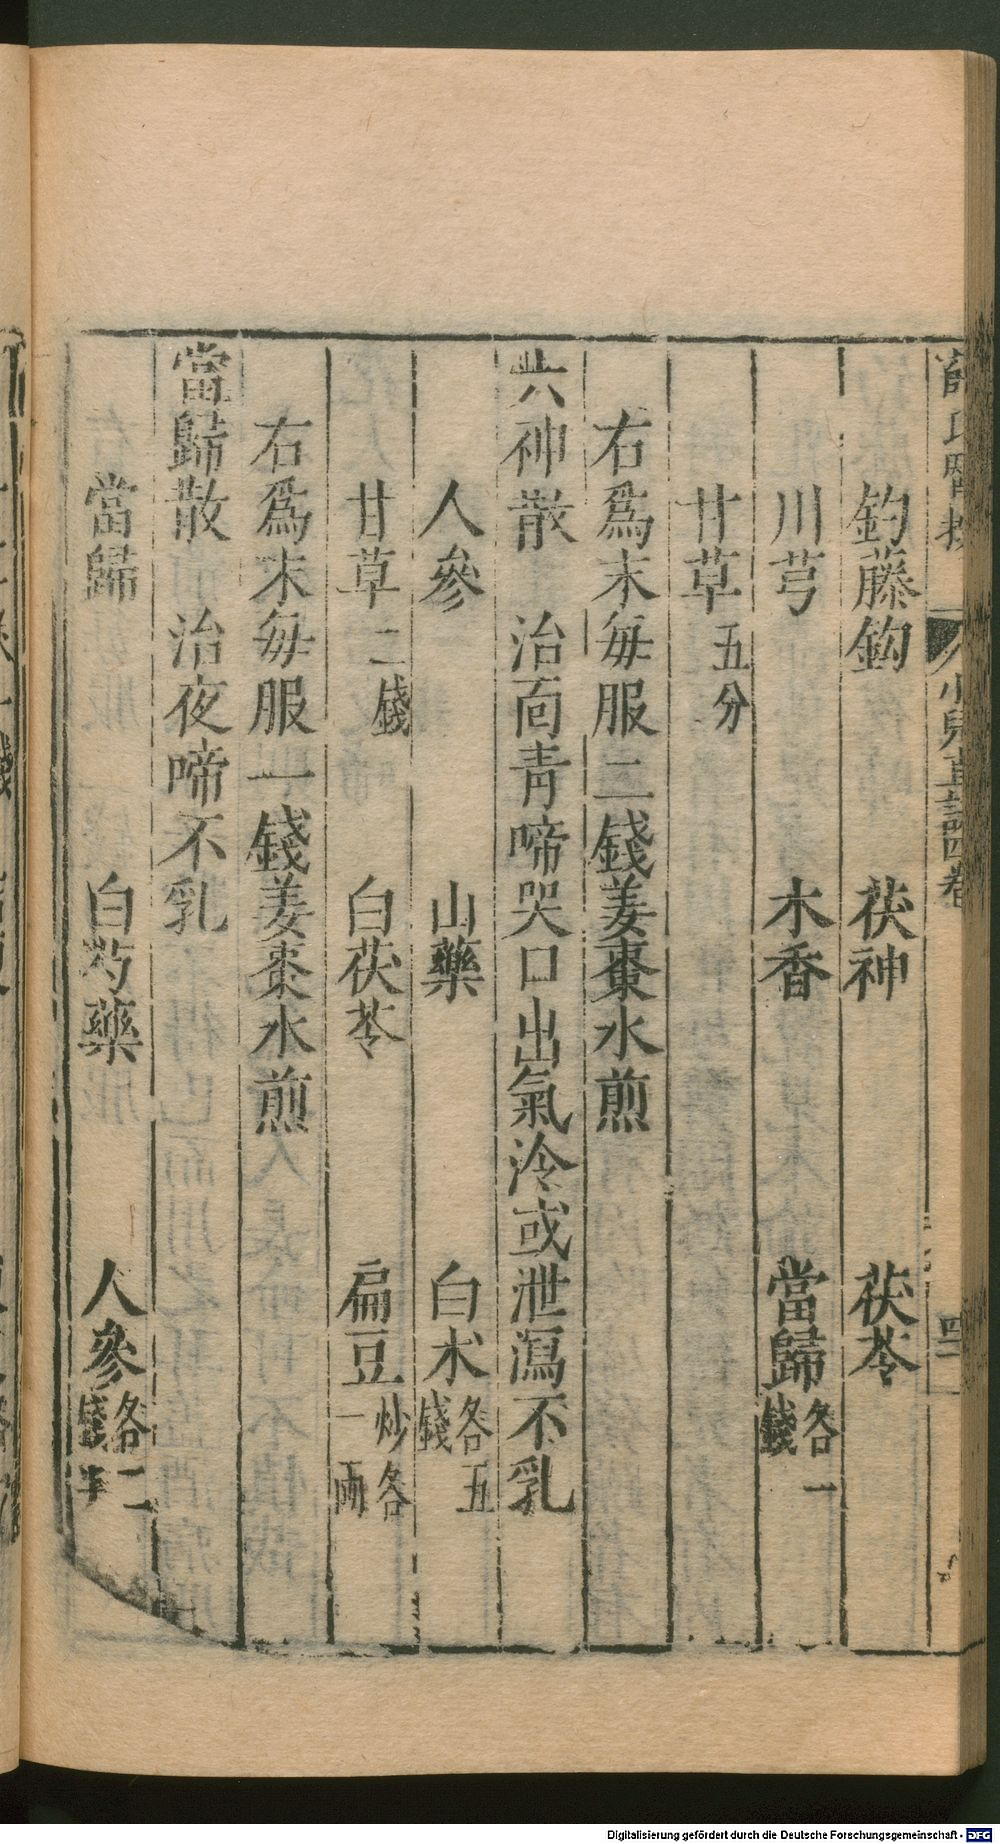 薛氏醫按 小兒直訣四卷 四二
鈞藤鈎 茯神 茯苓
川芎 木香 當歸各一錢
甘草五分
右爲末每服二錢姜棗水煎
六神散 治面青啼哭口出氣冷或泄瀉不乳
人參 山藥 白朮各五錢
甘草二錢 白茯苓 扁豆炒各一兩
右爲末每服一錢姜棗水煎
當歸散 治夜啼不乳
當歸 白芍藥 人參各二錢半
Digitalisierung gefördert durch die Deutsche Forschungsgemeinschaft - DFG